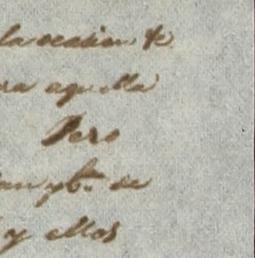 la ocasion de
ra aquella
Pero
de
y ellos